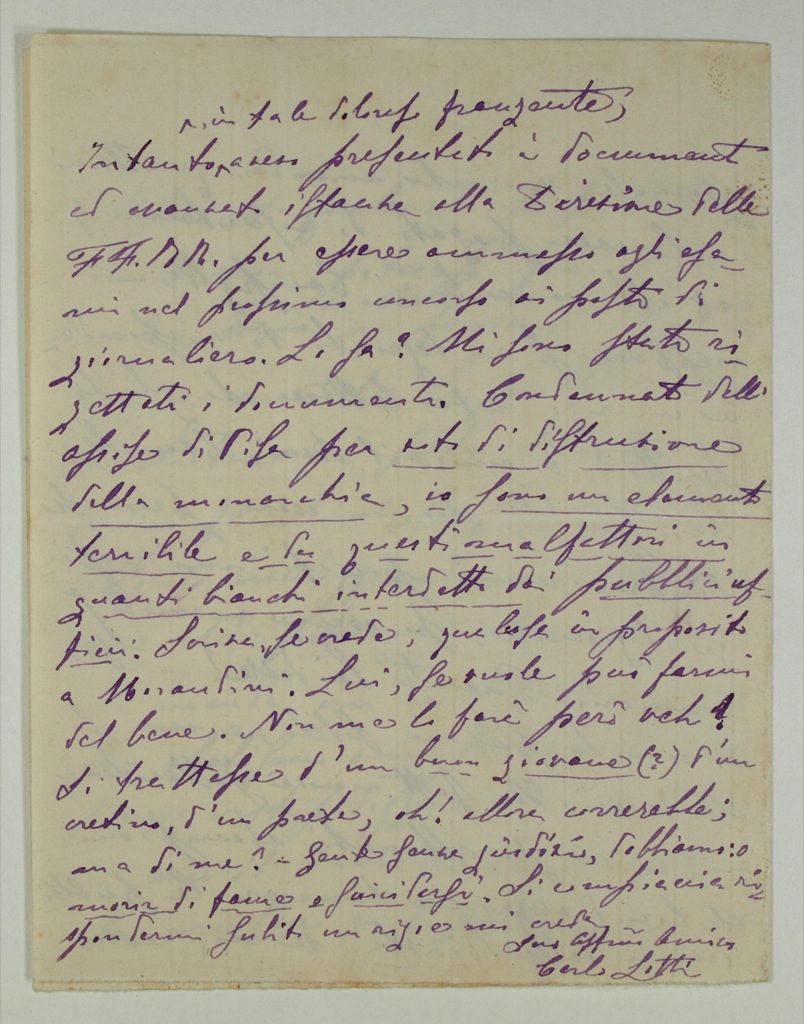 in tale doloroso frangente,
Intanto, avevo presentati i documenti
ed avanzata istanza alla Direzione delle
FF.RR. per essere ammesso agli esa-
mi nel prossimo concorso ai posti di
giornaliero. Lo sa? Mi sono stati ri-
gettati i documenti. Condannato dalle
assise di Pisa per voti di distruzione
della monarchia, io sono un elemento
terribile e da questi malfattori in
guanti bianchi interdetto dai pubblici uf-
fici. Scriva, se crede, qualcosa in proposito
a Morandini. Lui, se vuole può farmi
del bene. Non me lo farà però veh!
Si trattasse d'un buon giovane (?) d'un
cretino, d'un prete, oh! allora correrebbe;
ma di me? - Gente senza giudizio, dobbiamo
morir di fame e suicidarsi. Si compiaccia ri-
spondermi subito un rigo e mi creda
Suo affmo amico
Carlo Lotti